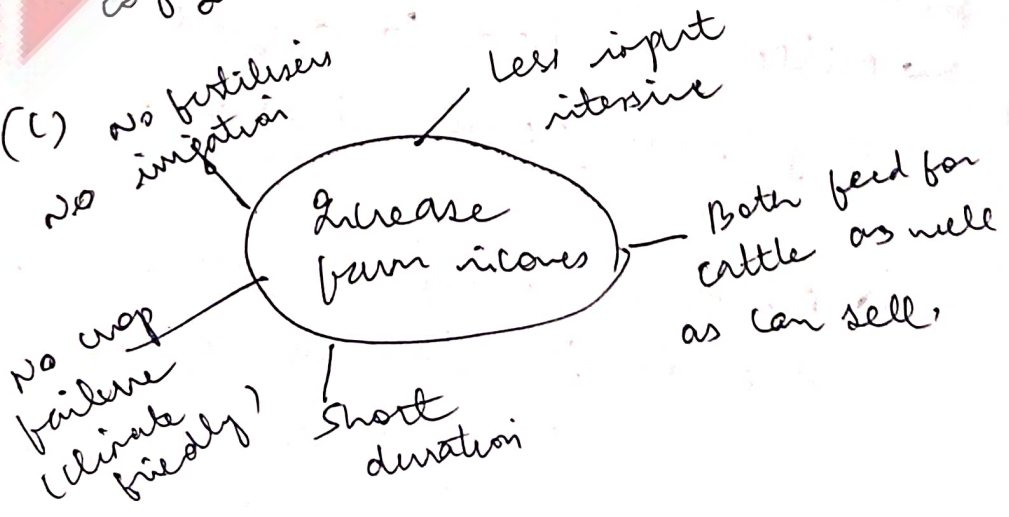 (C) No fertilisers
No irrigation
Less input
intensive
Increase
farm incomes
Both feed for
cattle as well
as can sell,
No crop
failure
(climate
friedly)
Short
duration